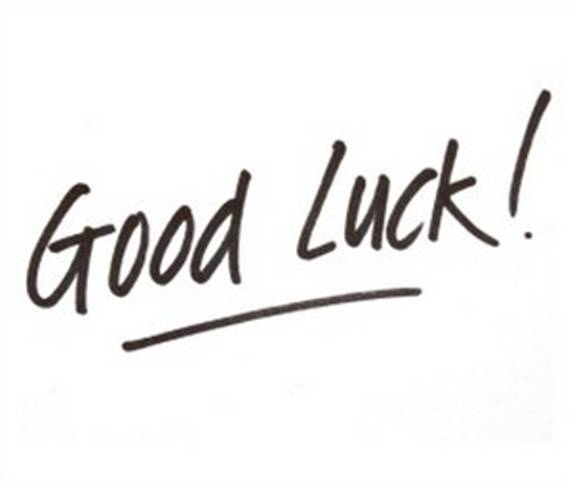 Good Luck!